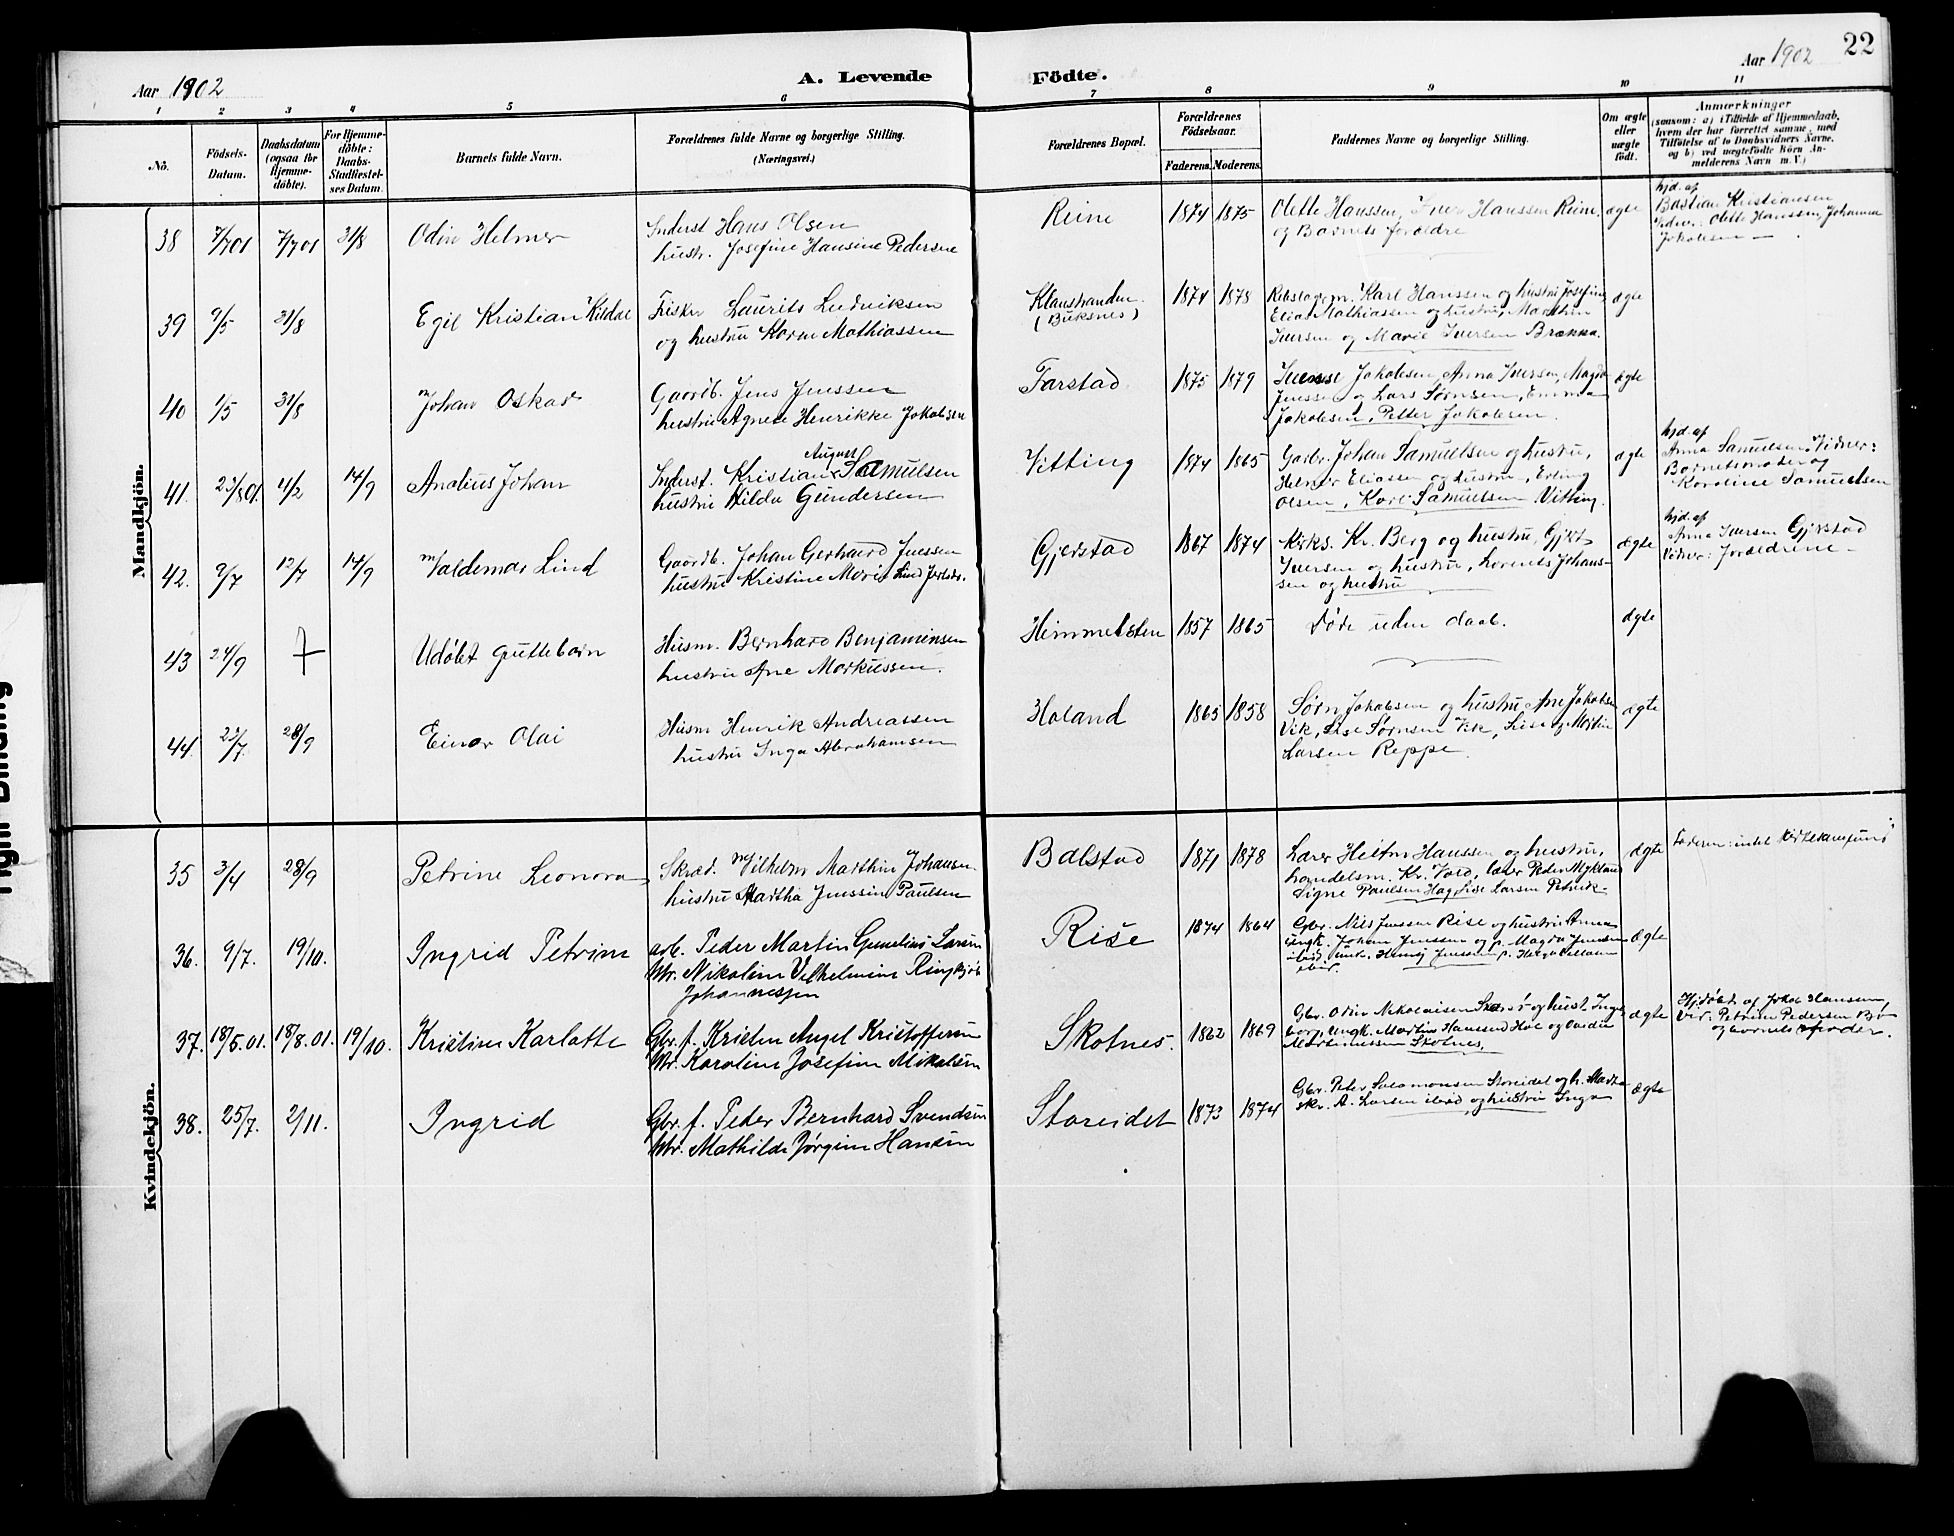 Aar 1902
A. Levende
Födte.
Aar 1902
22
1 2 3 4 5 6 7 8 9 10 11
No.
Födsels-
Datum.
Daabsdatum
(ogsaa for
Hjemme-
döbte).
For Hjemme-
döbte:
Daabs-
Stadfæstel-
ses Datum.
Barnets fulde Navn.
Forældrenes fulde Navne og borgerlige Stilling.
(Næringsvei.)
Forældrenes Bopæl.
Forældrenes
Födselsaar.
Faderens. Moderens.
Faddernes Navne og borgerlig Stilling.
Om ægte
eller
uægte
födt.
Anmærkninger
(saasom: a) i Tilfælde af Hjemmedaab,
hvem der har forrettet samme, med
Tilföielse af to Daabsvidners Navne,
og b) ved uægtefödte Börn An-
melderens Navn m. V.)
Mandkjön.
38 7/7 01 7/7 01 31/8 Odin Helmer
Inderst Hans Olsen
hustr. Josefine Hansine Pedersen
Reine 1874 1875
Olette Hanssen, Iver Hanssen Reine
og Barnets forældre
ægte
hjd. af
Bastian Kristiansen
Vidner: Olette Hanssen, Johanna
Jakobsen
39 9/5 31/8 Egil Kristian Kildal
Fisker Laurits Ludviksen
og hustru Karen Mathiassen
Klaustranden
(Buksnes)
1874 1878
Karl Hanssen og hustru Josefine
Elias Mathiassen og hustru, Marthin
Iversen og Marie Iversen Brækka.
ægte
40 1/5 31/8 Johan Oskar
Gaardb. Jens Jenssen
hustru Agnete Henrikke Jakobsen
Farstad 1875 1879
Jakobsen, Anna Iversen, Magda
Jenssen og Lars Sørnsen, Emma
Jakobsen, Petter Jakobsen.
ægte
41. 23/8 01. 4/2 14/9 Analius Johan
August
Inderst. Kristian Samulsen
hustru Hilda Gundersen
Vitting 1874 1865
Garbr. Johan Samuelsen og hustru,
Helmer Eliassen og hustru, Erling
Olsen, Karl Samuelsen Vitting.
ægte
hjd. af
Anna Samulsen, Vidner:
Barnets moder og
Karoline Samuelsen
42. 9/7 12/7 14/9 Valdemar Lind
Gaardb. Johan Gerhard Jenssen
hustru Kristine Marie Lind
Gjerstad 1867 1874
Kirks. Kr. Berg og hustru, Gjert
Iversen og hustru, Lorents Johans-
sen og hustru
ægte
hjd. af
Anna Iversen Gjerstad
Vidner: forældrene
43 24/9 † Udøbt guttebarn
Husm. Bernhard Benjaminsen
hustru Ane Markussen.
Himmelsten 1857 1865
Døde uden daab.
ægte
44. 23/7. 28/9 Einar Olai
Husm Henrik Andreassen
hustru Inga Abrahamsen
Holand 1865 1858
Sørn Jakobsen og hustru Ane Jakobsen
Vik, Lise Sørnsen Vik, Lise og Martin
Larsen Reppe.
ægte
Kvindekjön.
35 3/4 28/9 Petrine Leonora
Skræd. Vilhelm Marthin Johansen
hustru Martha Jenssine Paulsen
Balstad 1871 1878
Lærer Heitm Hanssen og hustru,
handelsm. Kr. Vard, lærer Peder Mykland
Signe Paulsen Hag, Lise Larsen
ægte
36. 9/7. 19/10. Ingrid Petrine
arb. Peder Martin Larsen
htr. Nikoline Vilhelmine
Johannessen
Rise 1874 1864
Gbr. Nils Jenssen Rise og hustru Anna
ungk. Johan Jenssen og p. Magda Jensen
ægte
37. 18/5. 01. 18/8. 01. 19/10. Kristine Karlotte
Gbr. f. Kristen Angel Kristoffersen
htr. Karoline Josefine Mikalsen
Skotnes. 1862 1869
Gbr. Odin Nikolaisen og hust. Inge-
borg, ungk. Martin Hanssen Hol og
Skotnes.
ægte
Hjdøbt af Jakob Hansen,
Vid. Petrine Pedersen Bø
og barnets fader.
38. 25/7. 2/11. Ingrid
Gbr. f. Peder Bernhard Svendsen
htr. Mathilde Jørgine Hansen
Storeidet 1873 1874
Gbr. Peter Salomonsen Storeidet og h.
skr. A. Larsen ibid. og hustru Inga
ægte